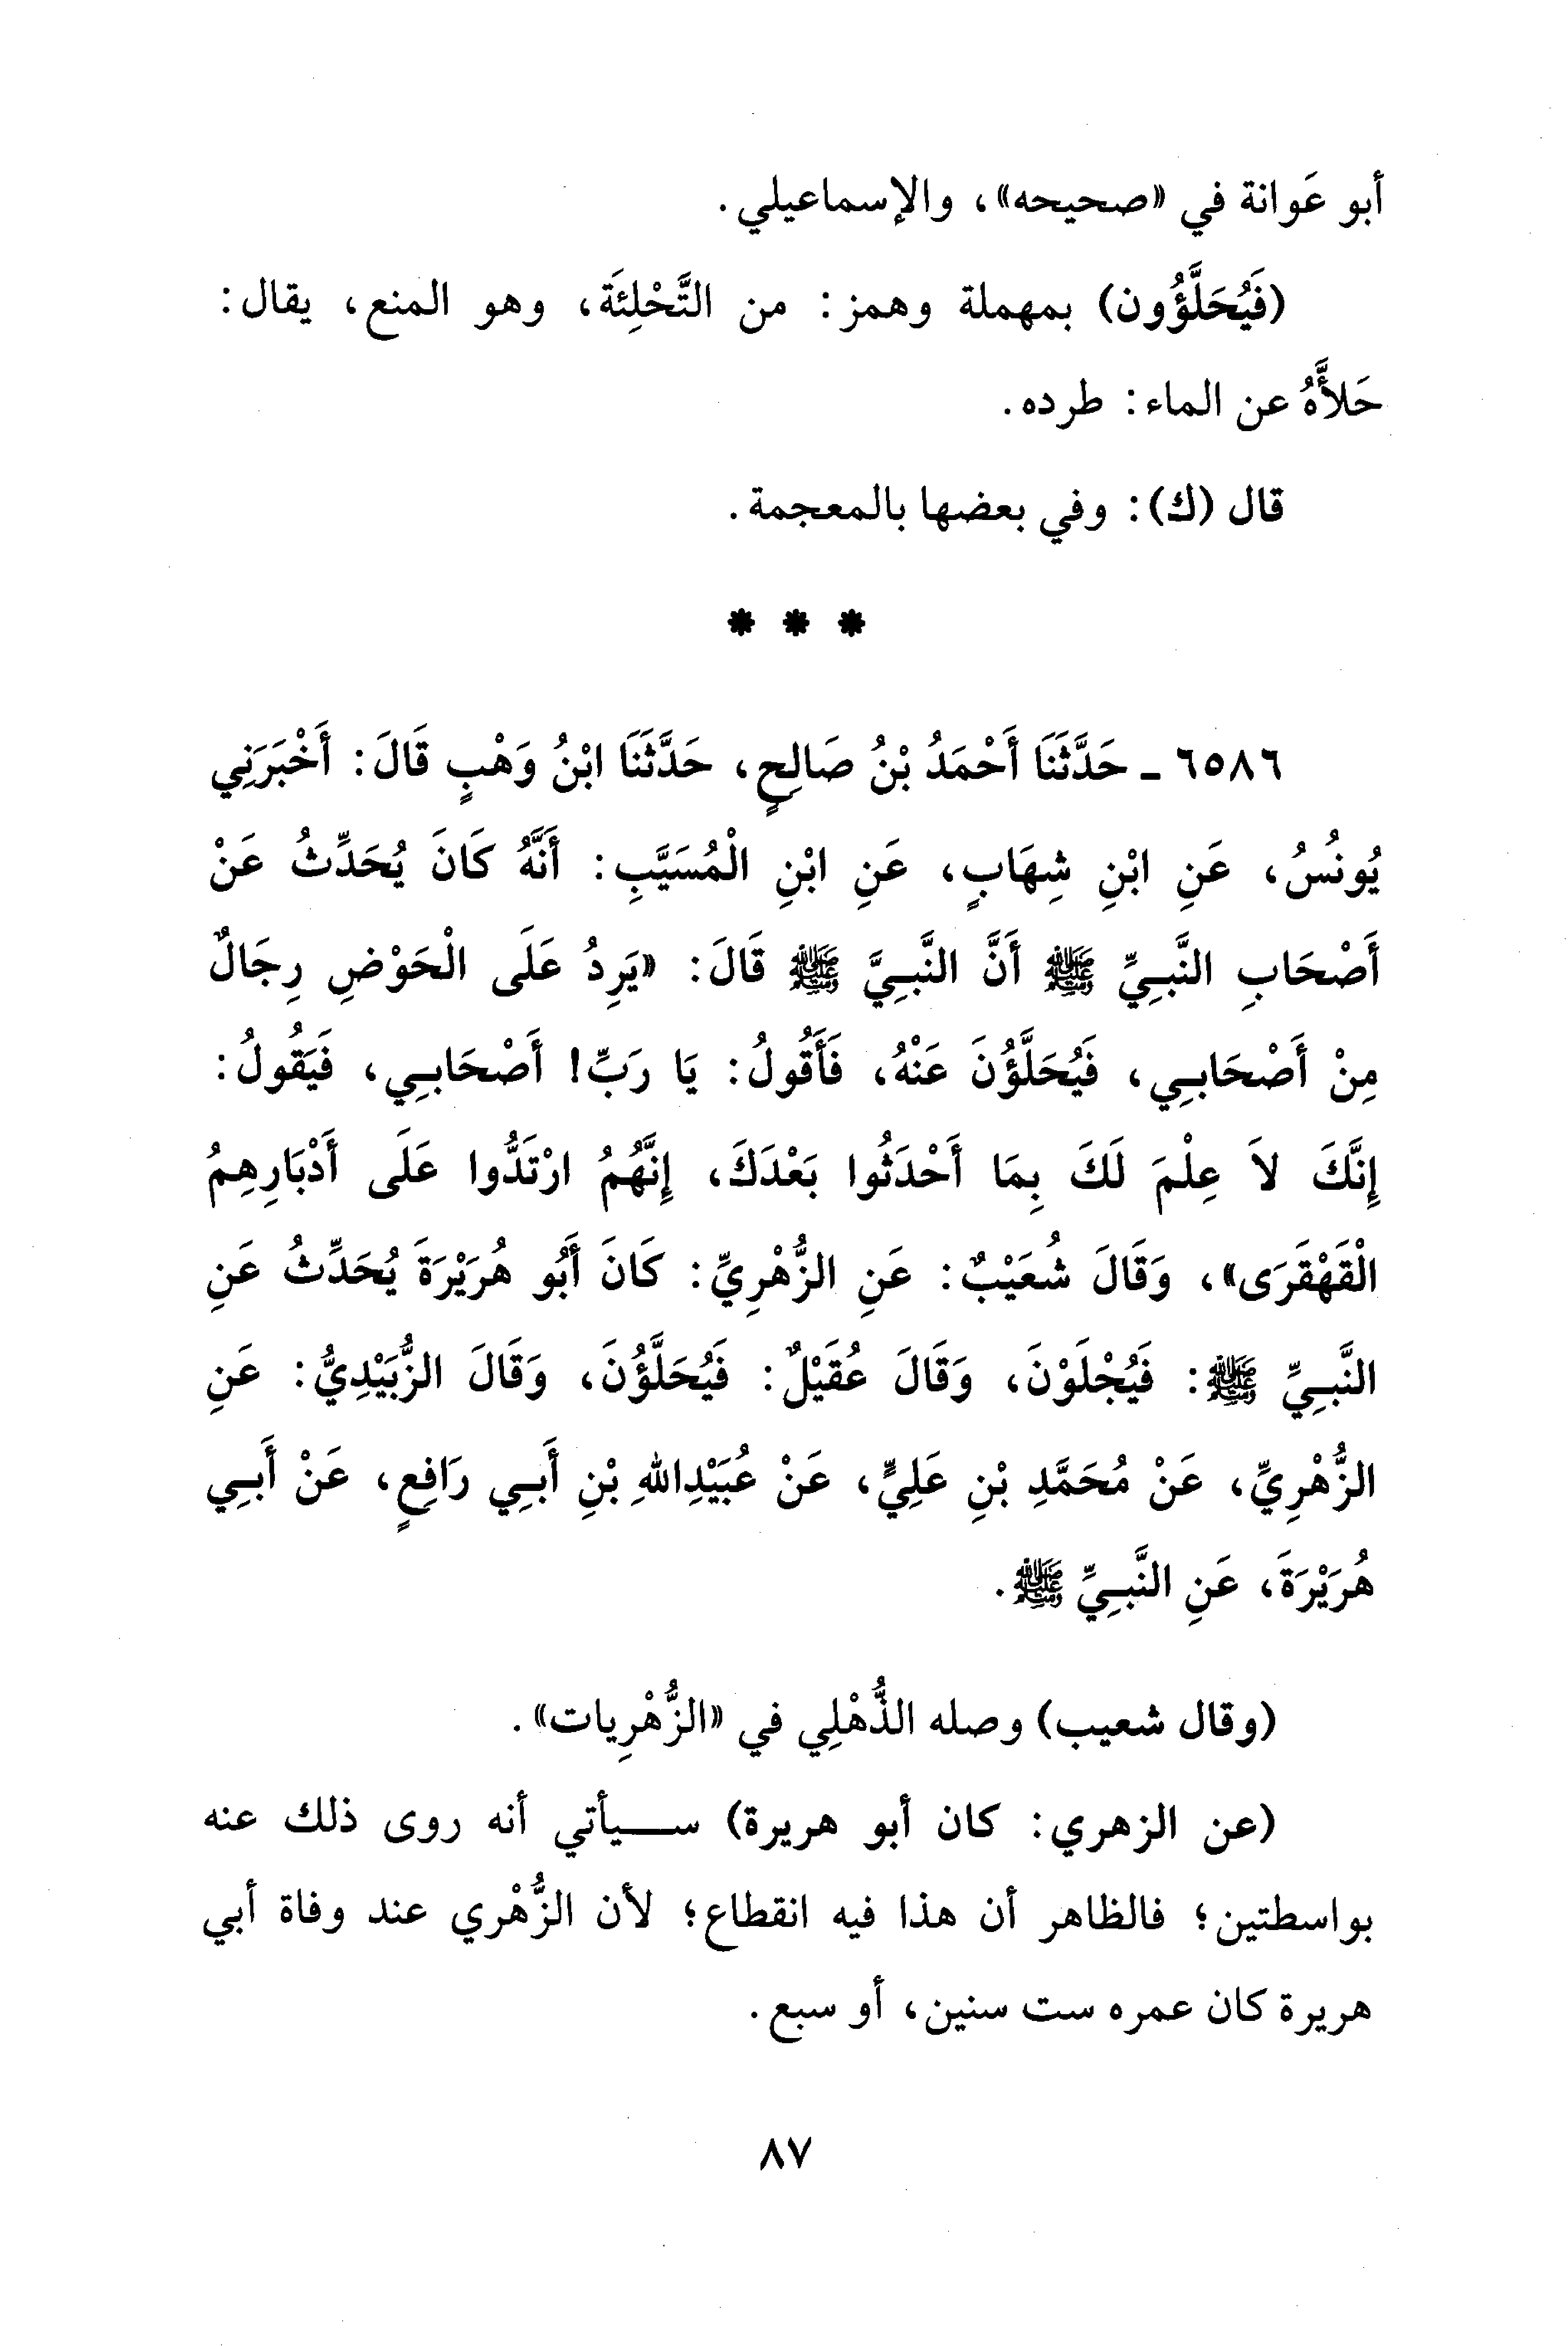 أبو عَوانة في «صحيحه»، والإسماعيلي.
(فَيُحَلَّؤُون) بمهملة وهمز: من التَّحْلِئَة، وهو المنع، يقال:
حَلأَّهُ عن الماء: طرده.
قال (ك): وفي بعضها بالمعجمة.
* * *
٦٥٨٦ ـ حَدَّثَنَا أَحْمَدُ بْنُ صَالِحٍ، حَدَّثَنَا ابْنُ وَهْبٍ قَالَ: أَخْبَرَنِي
يُونُسُ، عَنِ ابْنِ شِهَابٍ، عَنِ ابْنِ الْمُسَيَّبِ: أَنَّهُ كَانَ يُحَدِّثُ عَنْ
أَصْحَابِ النَّبِيِّ ﷺ أَنَّ النَّبِيَّ ﷺ قَالَ: «يَرِدُ عَلَى الْحَوْضِ رِجَالٌ
مِنْ أَصْحَابِي، فَيُحَلَّؤُنَ عَنْهُ، فَأَقُولُ: يَا رَبِّ! أَصْحَابِي، فَيَقُولُ:
إِنَّكَ لاَ عِلْمَ لَكَ بِمَا أَحْدَثُوا بَعْدَكَ، إِنَّهُمُ ارْتَدُّوا عَلَى أَدْبَارِهِمُ
الْقَهْقَرَى»، وَقَالَ شُعَيْبٌ: عَنِ الزُّهْرِيِّ: كَانَ أَبُو هُرَيْرَةَ يُحَدِّثُ عَنِ
النَّبِيِّ ﷺ: فَيُجْلَوْنَ، وَقَالَ عُقَيْلٌ: فَيُحَلَّؤُنَ، وَقَالَ الزُّبَيْدِيُّ: عَنِ
الزُّهْرِيِّ، عَنْ مُحَمَّدِ بْنِ عَلِيٍّ، عَنْ عُبَيْدِاللهِ بْنِ أَبِي رَافِعٍ، عَنْ أَبِي
هُرَيْرَةَ، عَنِ النَّبِيِّ ﷺ.
(وقال شعيب) وصله الذُّهْلِي في «الزُّهْرِيات».
(عن الزهري: كان أبو هريرة) سـيأتي أنه روى ذلك عنه
بواسطتين؛ فالظاهر أن هذا فيه انقطاع؛ لأن الزُّهْري عند وفاة أبي
هريرة كان عمره ست سنين، أو سبع.
٨٧